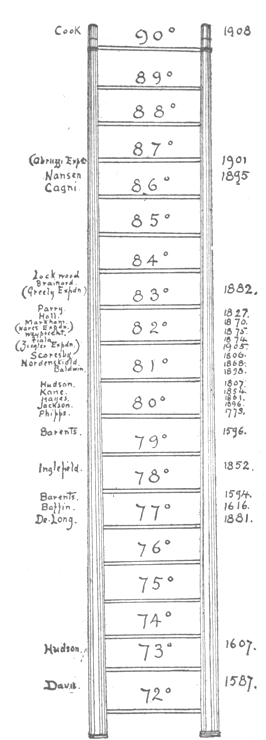 Cook 90° 1908
89°
88°
87°
(Abruzzi Expe 1901
Nansen 1895
Cagni. 86°
85°
84°
Lockwood
Brainard.
(Greely Expdn) 83° 1882.
Parry. 1827.
Hall. 1870.
Markham.
(Nares Expdn.) 82° 1875.
Weyprecht. 1874.
Fiala
(Ziegler Expdn.) 1905.
Scoresby 1806.
Nordenskiold. 81° 1868.
Baldwin. 1898.
Hudson. 1807.
Kane. 1854.
Hayes. 1861.
Jackson. 80° 1896.
Phipps. 773.
Barents. 79° 1596.
Inglefield. 78° 1852.
Barents. 1594.
Baffin. 77° 1616.
De Long. 1881.
76°
75°
74°
Hudson. 73° 1607.
Davis. 72° 1587.